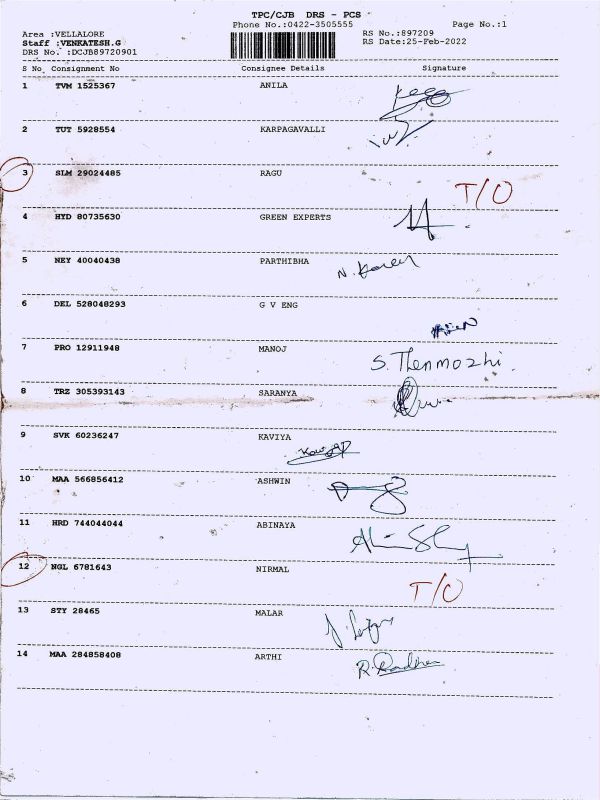 TPC/CJB DRS - PCS
Phone No.:0422-3505555
Page No.:1
Area :VELLALORE
RS No.:897209
Staff :VENKATESH.G
RS Date:25-Feb-2022
DRS No. :DCJB89720901
S No Consignment No Consignee Details Signature
1 TVM 1525367 ANILA
2 TUT 5928554 KARPAGAVALLI
3 SLM 29024485 RAGU T/O
4 HYD 80735630 GREEN EXPERTS
5 NEY 40040438 PARTHIBHA
6 DEL 528048293 G V ENG
7 PRO 12911948 MANOJ S. Thenmozhi.
8 TRZ 305393143 SARANYA
9 SVK 60236247 KAVIYA
10 MAA 566856412 ASHWIN
11 HRD 744044044 ABINAYA
12 NGL 6781643 NIRMAL T/O
13 STY 28465 MALAR
14 MAA 284858408 ARTHI R. Radha